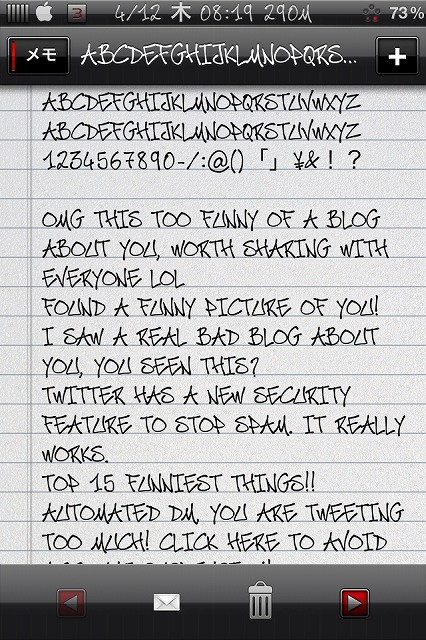 4/12 木 08:19 290M 73%
メモ ABCDEFGHIJKLMNOPQRS... +
ABCDEFGHIJKLMNOPQRSTUVWXYZ
ABCDEFGHIJKLMNOPQRSTUVWXYZ
1234567890-/:@()「」¥&！？
OMG THIS TOO FUNNY OF A BLOG
ABOUT YOU, WORTH SHARING WITH
EVERYONE LOL
FOUND A FUNNY PICTURE OF YOU!
I SAW A REAL BAD BLOG ABOUT
YOU, YOU SEEN THIS?
TWITTER HAS A NEW SECURITY
FEATURE TO STOP SPAM. IT REALLY
WORKS.
TOP 15 FUNNIEST THINGS!!
AUTOMATED DM, YOU ARE TWEETING
TOO MUCH! CLICK HERE TO AVOID